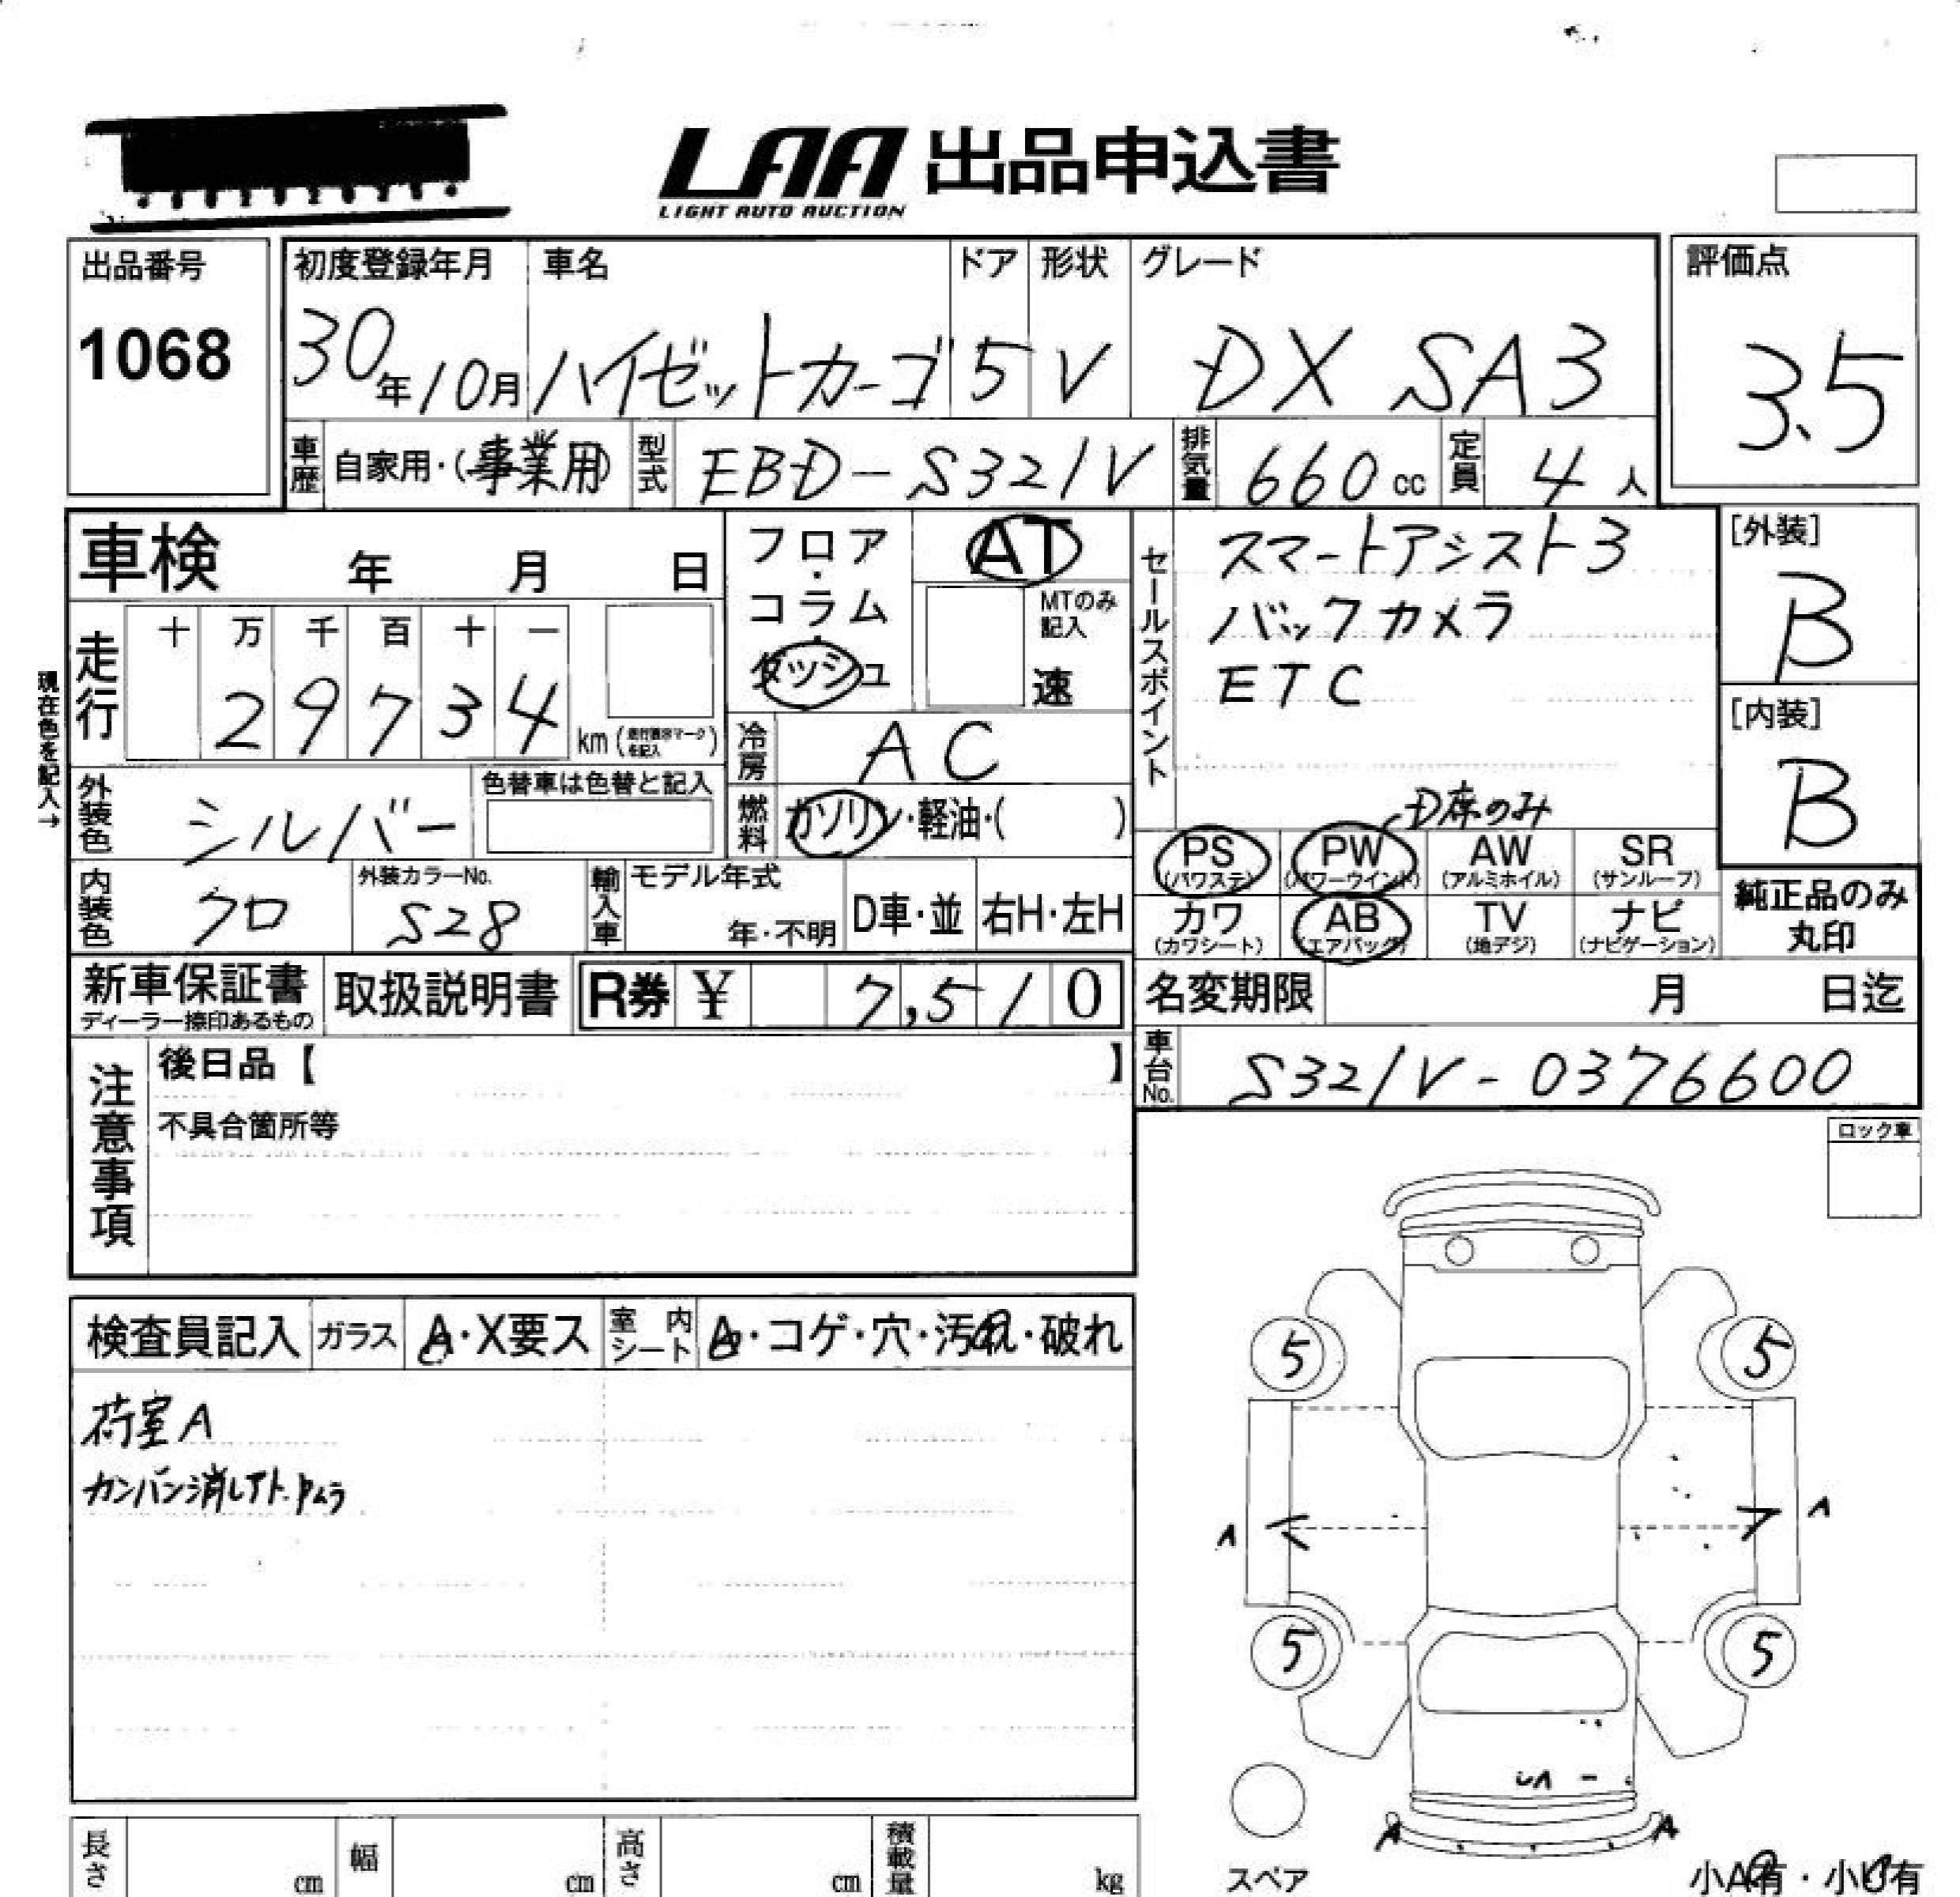 LAA 出品申込書
LIGHT AUTO AUCTION
出品番号
1068
初度登録年月
30年10月
車名
ハイゼットカーゴ
ドア
5
形状
V
グレード
DX SA3
評価点
3.5
車歴 自家用・(事業用)
型式 EBD-S321V
排気量 660cc
定員 4人
車検 年 月 日
フロア・コラム・ダッシュ
AT
MTのみ記入
速
セールスポイント
スマートアシスト3
バックカメラ
ETC
[外装]
B
[内装]
B
現在色を記入→
走行
十 万 千 百 十 一
2 9 7 3 4 km
冷房 AC
外装色 シルバー
色替車は色替と記入
燃料 ガソリン・軽油・( )
D席のみ
PS (パワステ)
PW (パワーウインド)
AW (アルミホイル)
SR (サンルーフ)
カワ (カワシート)
AB (エアバッグ)
TV (地デジ)
ナビ (ナビゲーション)
純正品のみ丸印
内装色 クロ
外装カラーNo.
S28
輸入車 モデル年式
年・不明
D車・並
右H・左H
新車保証書
ディーラー捺印あるもの
取扱説明書
R券 ¥ 7,510
名変期限 月 日迄
車台No. S321V-0376600
注意事項
後日品【 】
不具合箇所等
ロック車
検査員記入
ガラス A・X要ス
室内シート A・コゲ・穴・汚れ・破れ
荷室A
カンバン消しアト
5 5
A A
5 5
A A
スペア
小A有・小U有
長さ cm
幅 cm
高さ cm
積載量 kg